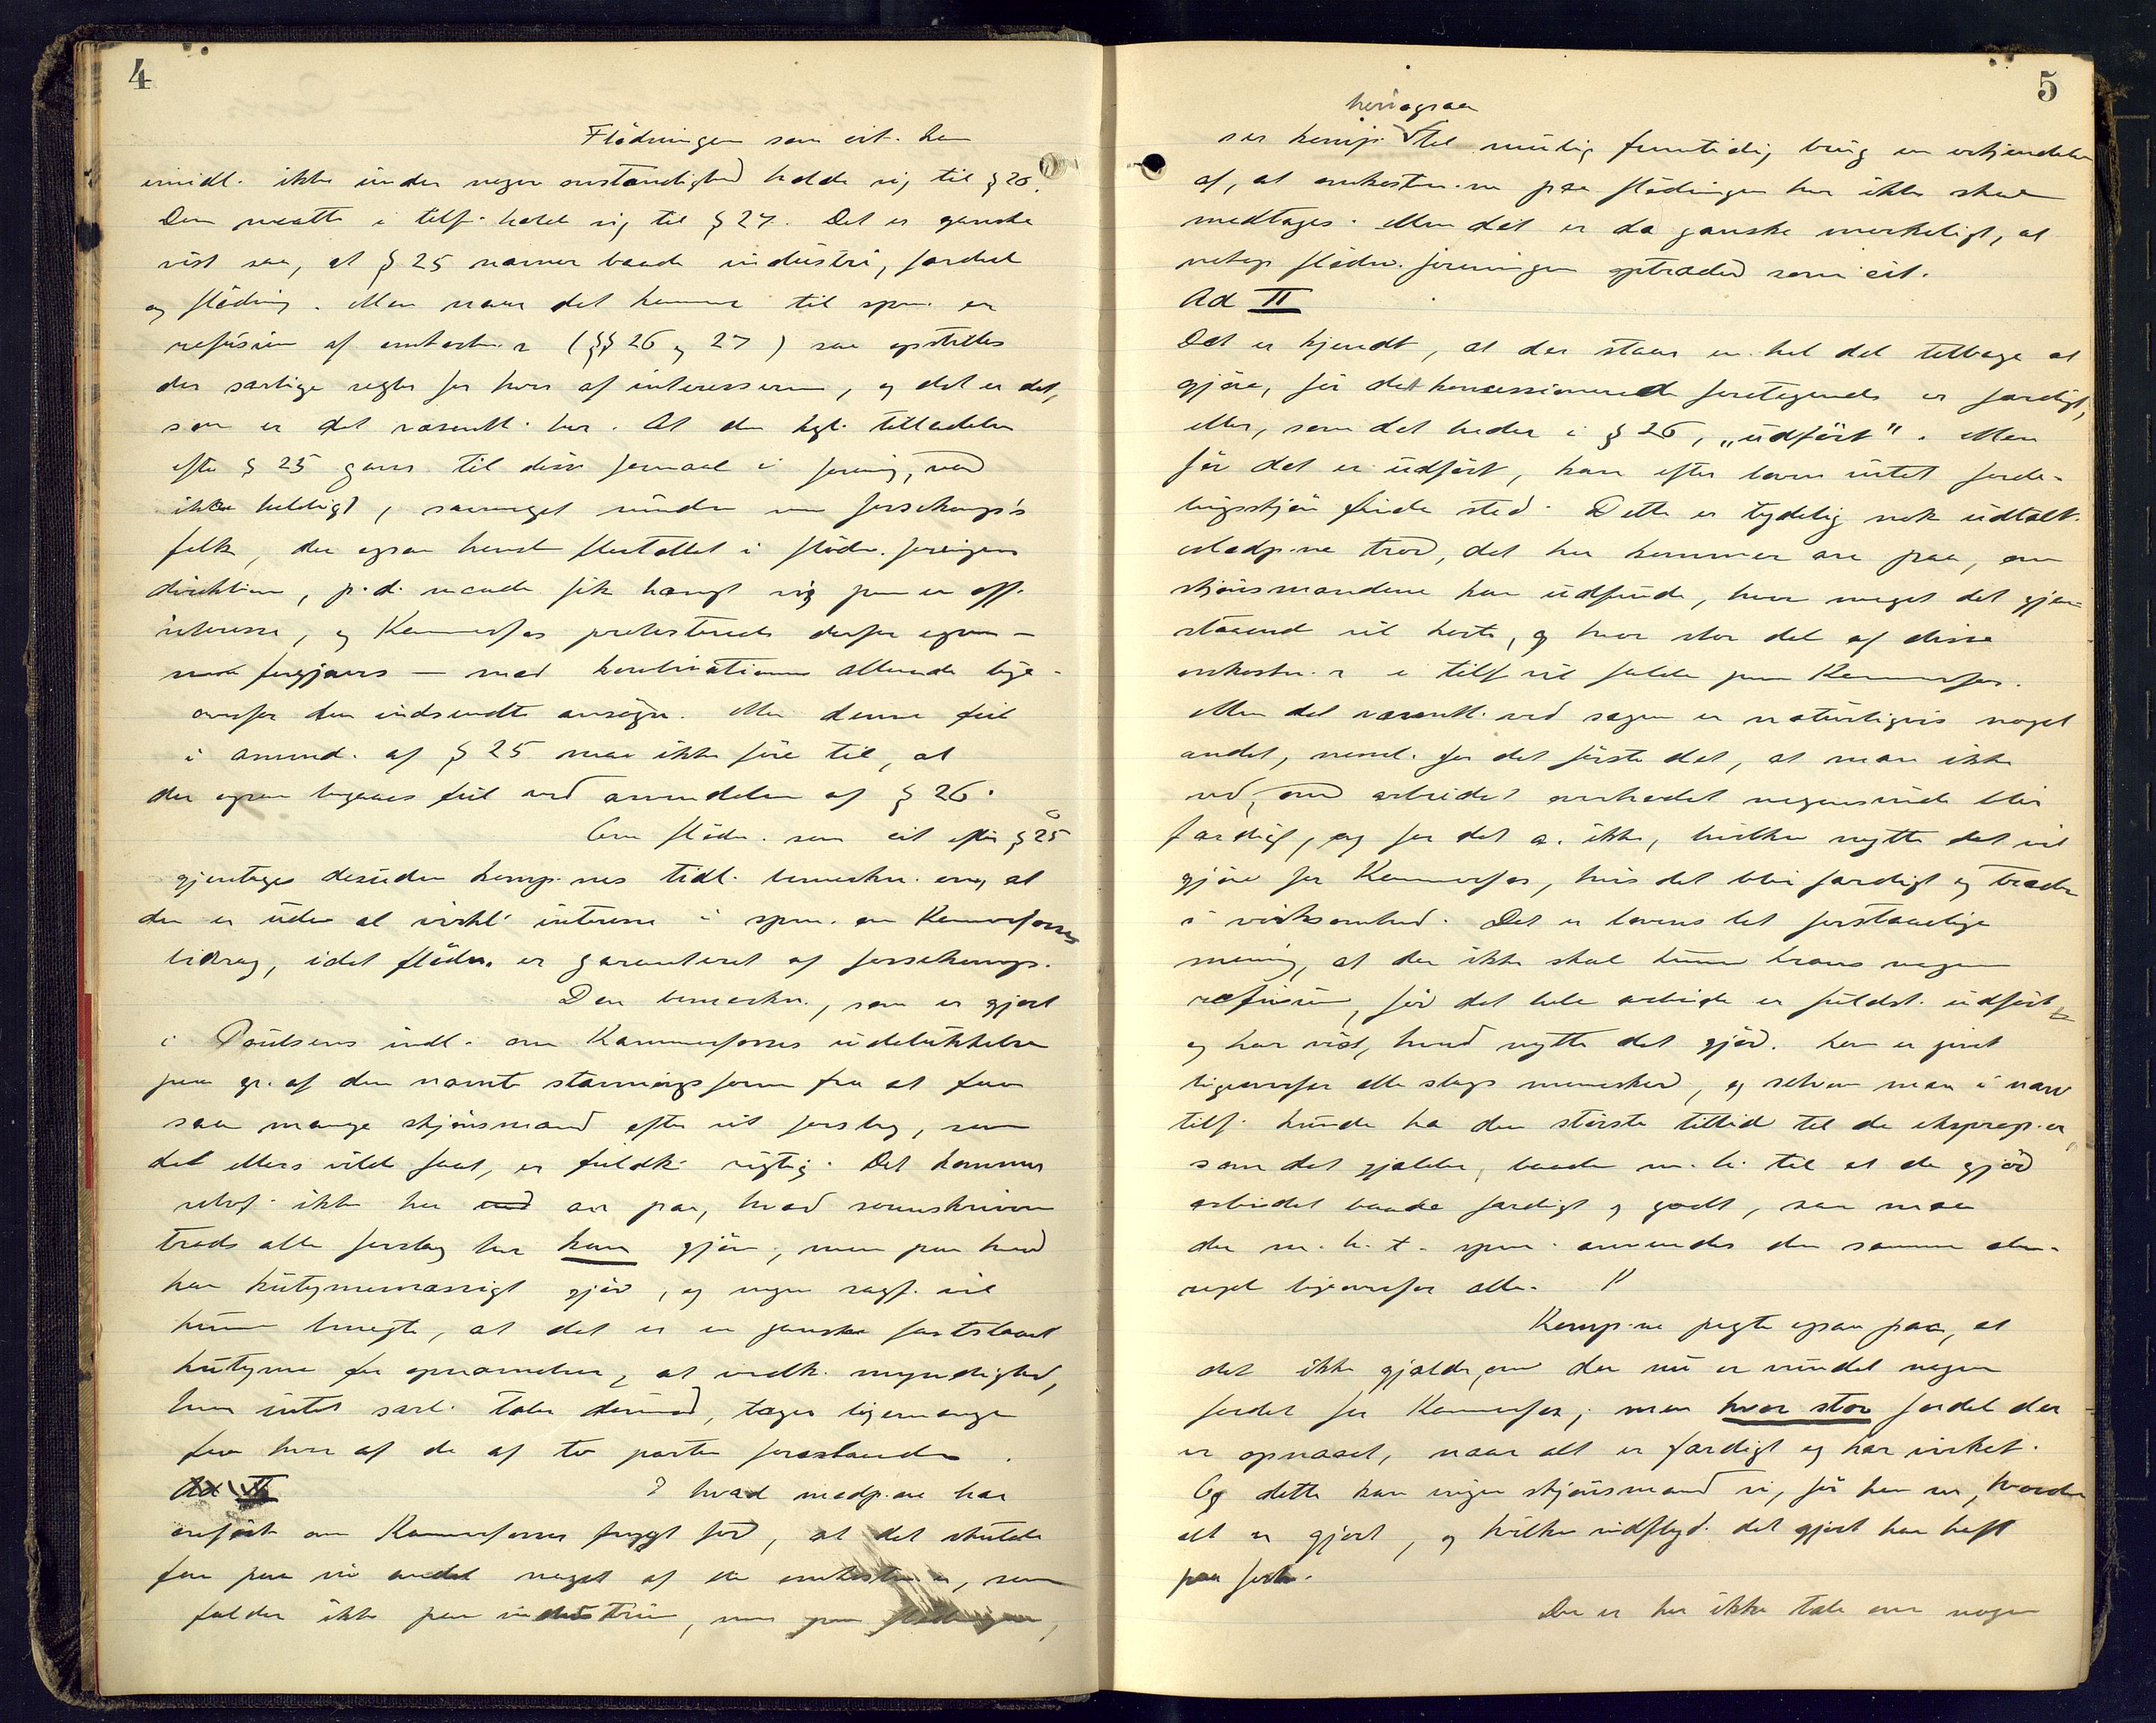 4
Flödningen som cit. kan
imidl. ikke under nogen omstændighed holde sig til § 26.
Den maatte i tilf. holde sig til § 27. Det er ganske
vist saa, at § 25 nævner baade industri, jordeier
og flödning. Men naar det kommer til spm. om
refusion af omkostn.r (§§ 26 og 27) saa opstilles
der særlige regler for hver af interesserne, og det er det,
som er det væsentl. her. At den kgl. tilladelse
efter § 25 gaves til disse formaal i forening, var
ikke heldigt, saameget mindre som
folk, der ogsaa havde flertallet i flödn. foreningens
direktion, p. d. maade fik hængt sig paa en off.
interesse, og Kammerfos protesterede derfor ogsaa —
forgjæves — mod kombinationen allerede lige-
overfor den indsendte ansögn. Men denne feil
i anvend. af § 25 maa ikke före til, at
der ogsaa begaaes feil ved anvendelsen af § 26.
Om flödn. som cit. efter § 25
gjentages desuden komp.nes tidl. bemerkn. om, at
den er uden al virkl. interesse i spm. om Kammerfosses
bidrag, idet flödn. er garanteret af
Den bemerkn., som er gjort
i Poulsens indl. om Kammerfosses udelukkelse
paa gr. af den nævnte stævningsform fra at faa
saa mange skjönsmænd efter sit forslag, som
det ellers vilde faat, er fuldk. rigtig. Det kommer
selvf. ikke her an paa, hvad sorenskriveren
trods alle forslag her kan gjöre, men paa hvad
han kutymemæssigt gjör, og ingen sagf. vil
kunne benegte, at det er en ganske fastslaaet
kutyme for opnævnelsen, at vedk. myndighed,
hvor intet særl. taler derimod, tager ligemange
fra hver af de af to parter foreslaaede.
Ad II
I hvad modp.ne har
anfört om Kammerfosses frygt for, at det skulde
faa paa sin andel noget af de omkostn.r, som
falder ikke paa industrien, men paa flödningen,
5
herogsaa
ser komp. til mulig fremtidig brug en erkjendelse
af, at omkostn.ne paa flödningen her ikke skal
medtages. Men det er da ganske merkeligt, at
netop flödn. foreningen optræder som cit.
Ad II
Det er kjendt, at der staar en hel del tilbage at
gjöre, för det koncessionerede foretagende er færdigt,
eller, som det heder i § 26, „udfört". Men
för det er udfört, kan efter loven intet forde-
lingsskjön finde sted. Dette er tydelig nok udtalt.
Modp.ne tror, det her kommer an paa, om
skjönsmændene kan udfinde, hvor meget det gjen-
staaende vil koste, og hvor stor del af disse
omkostn.r i tilf. vil falde paa Kammerfos.
Men det væsentl. ved sagen er naturligvis noget
andet, neml. for det förste det, at man ikke
ved, om arbeidet overhodet nogensinde blir
færdigt, og for det a. ikke, hvilken nytte det vil
gjöre for Kammerfos, hvis det blir færdigt og træder
i virksomhed. Det er lovens let forstaaelige
mening, at der ikke skal kunne kræves nogen
refusion, för det hele arbeide er fuldst. udfört
og har vist, hvad nytte det gjör. Loven er givet
ligeoverfor alle slags mennesker, og selvom man i nærv.
tilf. kunde ha den störste tillid til de eksprop.er,
som det gjælder, baade m. h. til at de gjör
arbeidet baade færdigt og godt, saa maa
der m. h. t. spm. anvendes den samme alm.
regel ligeoverfor alle.
Komp.ne pegte ogsaa paa, at
det ikke gjælder, om der nu er vundet nogen
fordel for Kammerfos, men hvor stor fordel der
er opnaaet, naar alt er færdigt og har virket.
Og dette kan ingen skjönsmand si, för han ser, hvordan
alt er gjort, og hvilken indflyd. det gjort har havt
paa forh.
Der er her ikke tale om nogen